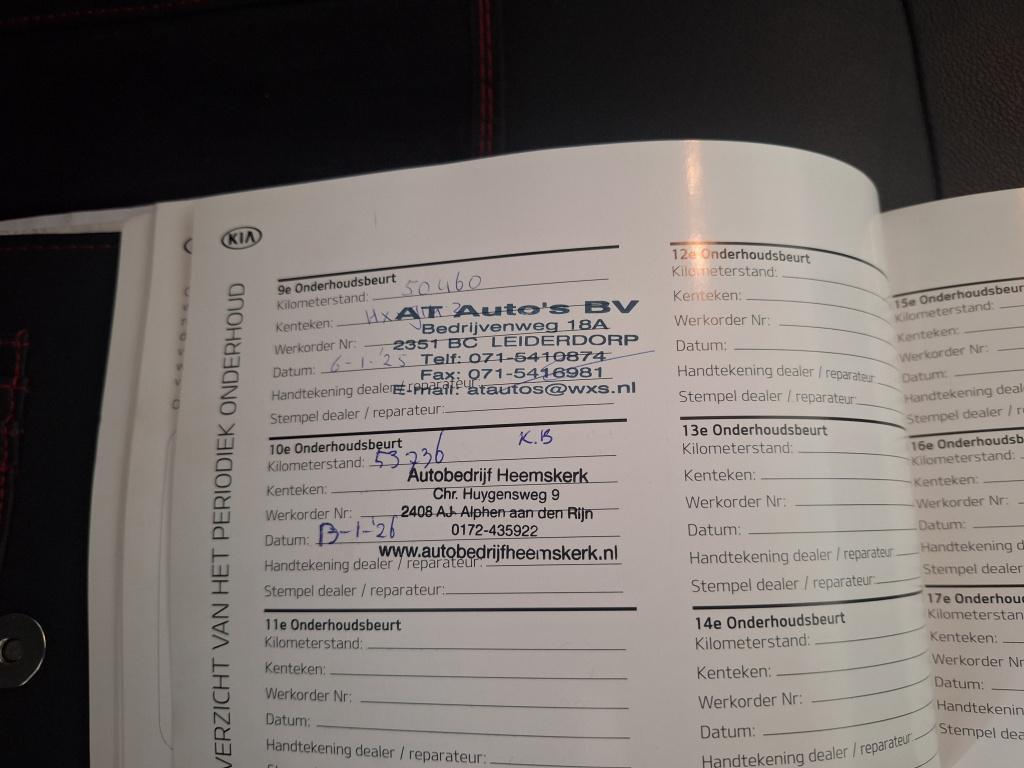 KIA
VERZICHT VAN HET PERIODIEK ONDERHOUD
9e Onderhoudsbeurt
Kilometerstand: 50460
Kenteken:
Werkorder Nr:
Datum: 6-1-'25
Handtekening dealer / reparateur:
Stempel dealer / reparateur:
AT Auto's BV
Bedrijvenweg 18A
2351 BC LEIDERDORP
Telf: 071-5410874
Fax: 071-5416981
E-mail: atautos@wxs.nl
10e Onderhoudsbeurt
K.B
Kilometerstand: 53736
Kenteken:
Werkorder Nr:
Datum: 13-1-'26
Handtekening dealer / reparateur:
Stempel dealer / reparateur:
Autobedrijf Heemskerk
Chr. Huygensweg 9
2408 AJ Alphen aan den Rijn
0172-435922
www.autobedrijfheemskerk.nl
11e Onderhoudsbeurt
Kilometerstand:
Kenteken:
Werkorder Nr:
Datum:
Handtekening dealer / reparateur:
12e Onderhoudsbeurt
Kilometerstand:
Kenteken:
Werkorder Nr:
Datum:
Handtekening dealer / reparateur
Stempel dealer / reparateur:
13e Onderhoudsbeurt
Kilometerstand:
Kenteken:
Werkorder Nr:
Datum:
Handtekening dealer / reparateur
Stempel dealer / reparateur:
14e Onderhoudsbeurt
Kilometerstand:
Kenteken:
Werkorder Nr:
Datum:
Handtekening dealer / reparateur:
15e Onderhoudsbeur
Kilometerstand:
Kenteken:
Werkorder Nr:
Datum:
Handtekening deale
Stempel dealer / re
16e Onderhoudsb
Kilometerstand:
Kenteken:
Werkorder Nr:
Datum:
Handtekening d
Stempel dealer
17e Onderhou
Kilometerstan
Kenteken:
Werkorder Nr
Datum:
Handtekenin
Stempel dea